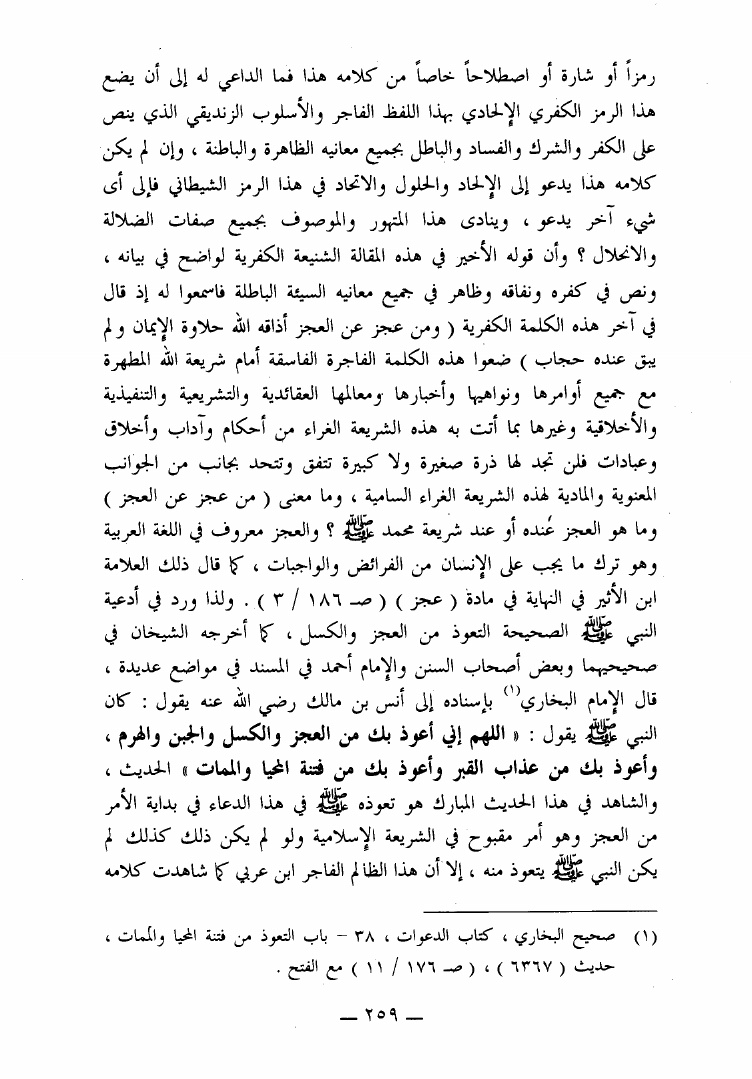 رمزاً أو شارة أو اصطلاحاً خاصاً من كلامه هذا فما الداعي له إلى أن يضع
هذا الرمز الكفري الإلحادي بهذا اللفظ الفاجر والأسلوب الزنديقي الذي ينص
على الكفر والشرك والفساد والباطل بجميع معانيه الظاهرة والباطنة ، وإن لم يكن
كلامه هذا يدعو إلى الإلحاد والحلول والاتحاد في هذا الرمز الشيطاني فإلى أى
شيء آخر يدعو ، وينادى هذا المتهور والموصوف بجميع صفات الضلالة
والانحلال ؟ وأن قوله الأخير في هذه المقالة الشنيعة الكفرية لواضح في بيانه ،
ونص في كفره ونفاقه وظاهر في جميع معانيه السيئة الباطلة فاسمعوا له إذ قال
في آخر هذه الكلمة الكفرية ( ومن عجز عن العجز أذاقه الله حلاوة الإيمان ولم
يبق عنده حجاب ) ضعوا هذه الكلمة الفاجرة الفاسقة أمام شريعة الله المطهرة
مع جميع أوامرها ونواهيها وأخبارها ومعالمها العقائدية والتشريعية والتنفيذية
والأخلاقية وغيرها بما أتت به هذه الشريعة الغراء من أحكام وآداب وأخلاق
وعبادات فلن تجد لها ذرة صغيرة ولا كبيرة تتفق وتتحد بجانب من الجوانب
المعنوية والمادية لهذه الشريعة الغراء السامية ، وما معنى ( من عجز عن العجز )
وما هو العجز عُنده أو عند شريعة محمد ﷺ ؟ والعجز معروف في اللغة العربية
وهو ترك ما يجب على الإنسان من الفرائض والواجبات ، كما قال ذلك العلامة
ابن الأثير في النهاية في مادة ( عجز ) ( صـ ١٨٦ / ٣ ) . ولذا ورد في أدعية
النبي ﷺ الصحيحة التعوذ من العجز والكسل ، كما أخرجه الشيخان في
صحيحيهما وبعض أصحاب السنن والإمام أحمد في المسند في مواضع عديدة ،
قال الإمام البخاري(١) بإسناده إلى أنس بن مالك رضي الله عنه يقول : كان
النبي ﷺ يقول : « اللهم إني أعوذ بك من العجز والكسل والجبن والهرم ،
وأعوذ بك من عذاب القبر وأعوذ بك من فتنة المحيا والممات » الحديث ،
والشاهد في هذا الحديث المبارك هو تعوذه ﷺ في هذا الدعاء في بداية الأمر
من العجز وهو أمر مقبوح في الشريعة الإسلامية ولو لم يكن ذلك كذلك لم
يكن النبي ﷺ يتعوذ منه ، إلا أن هذا الظالم الفاجر ابن عربي كما شاهدت كلامه
(١) صحيح البخاري ، كتاب الدعوات ، ٣٨ – باب التعوذ من فتنة المحيا والممات ،
حديث ( ٦٣٦٧ ) ، ( صـ ١٧٦ / ١١ ) مع الفتح .
— ٢٥٩ —